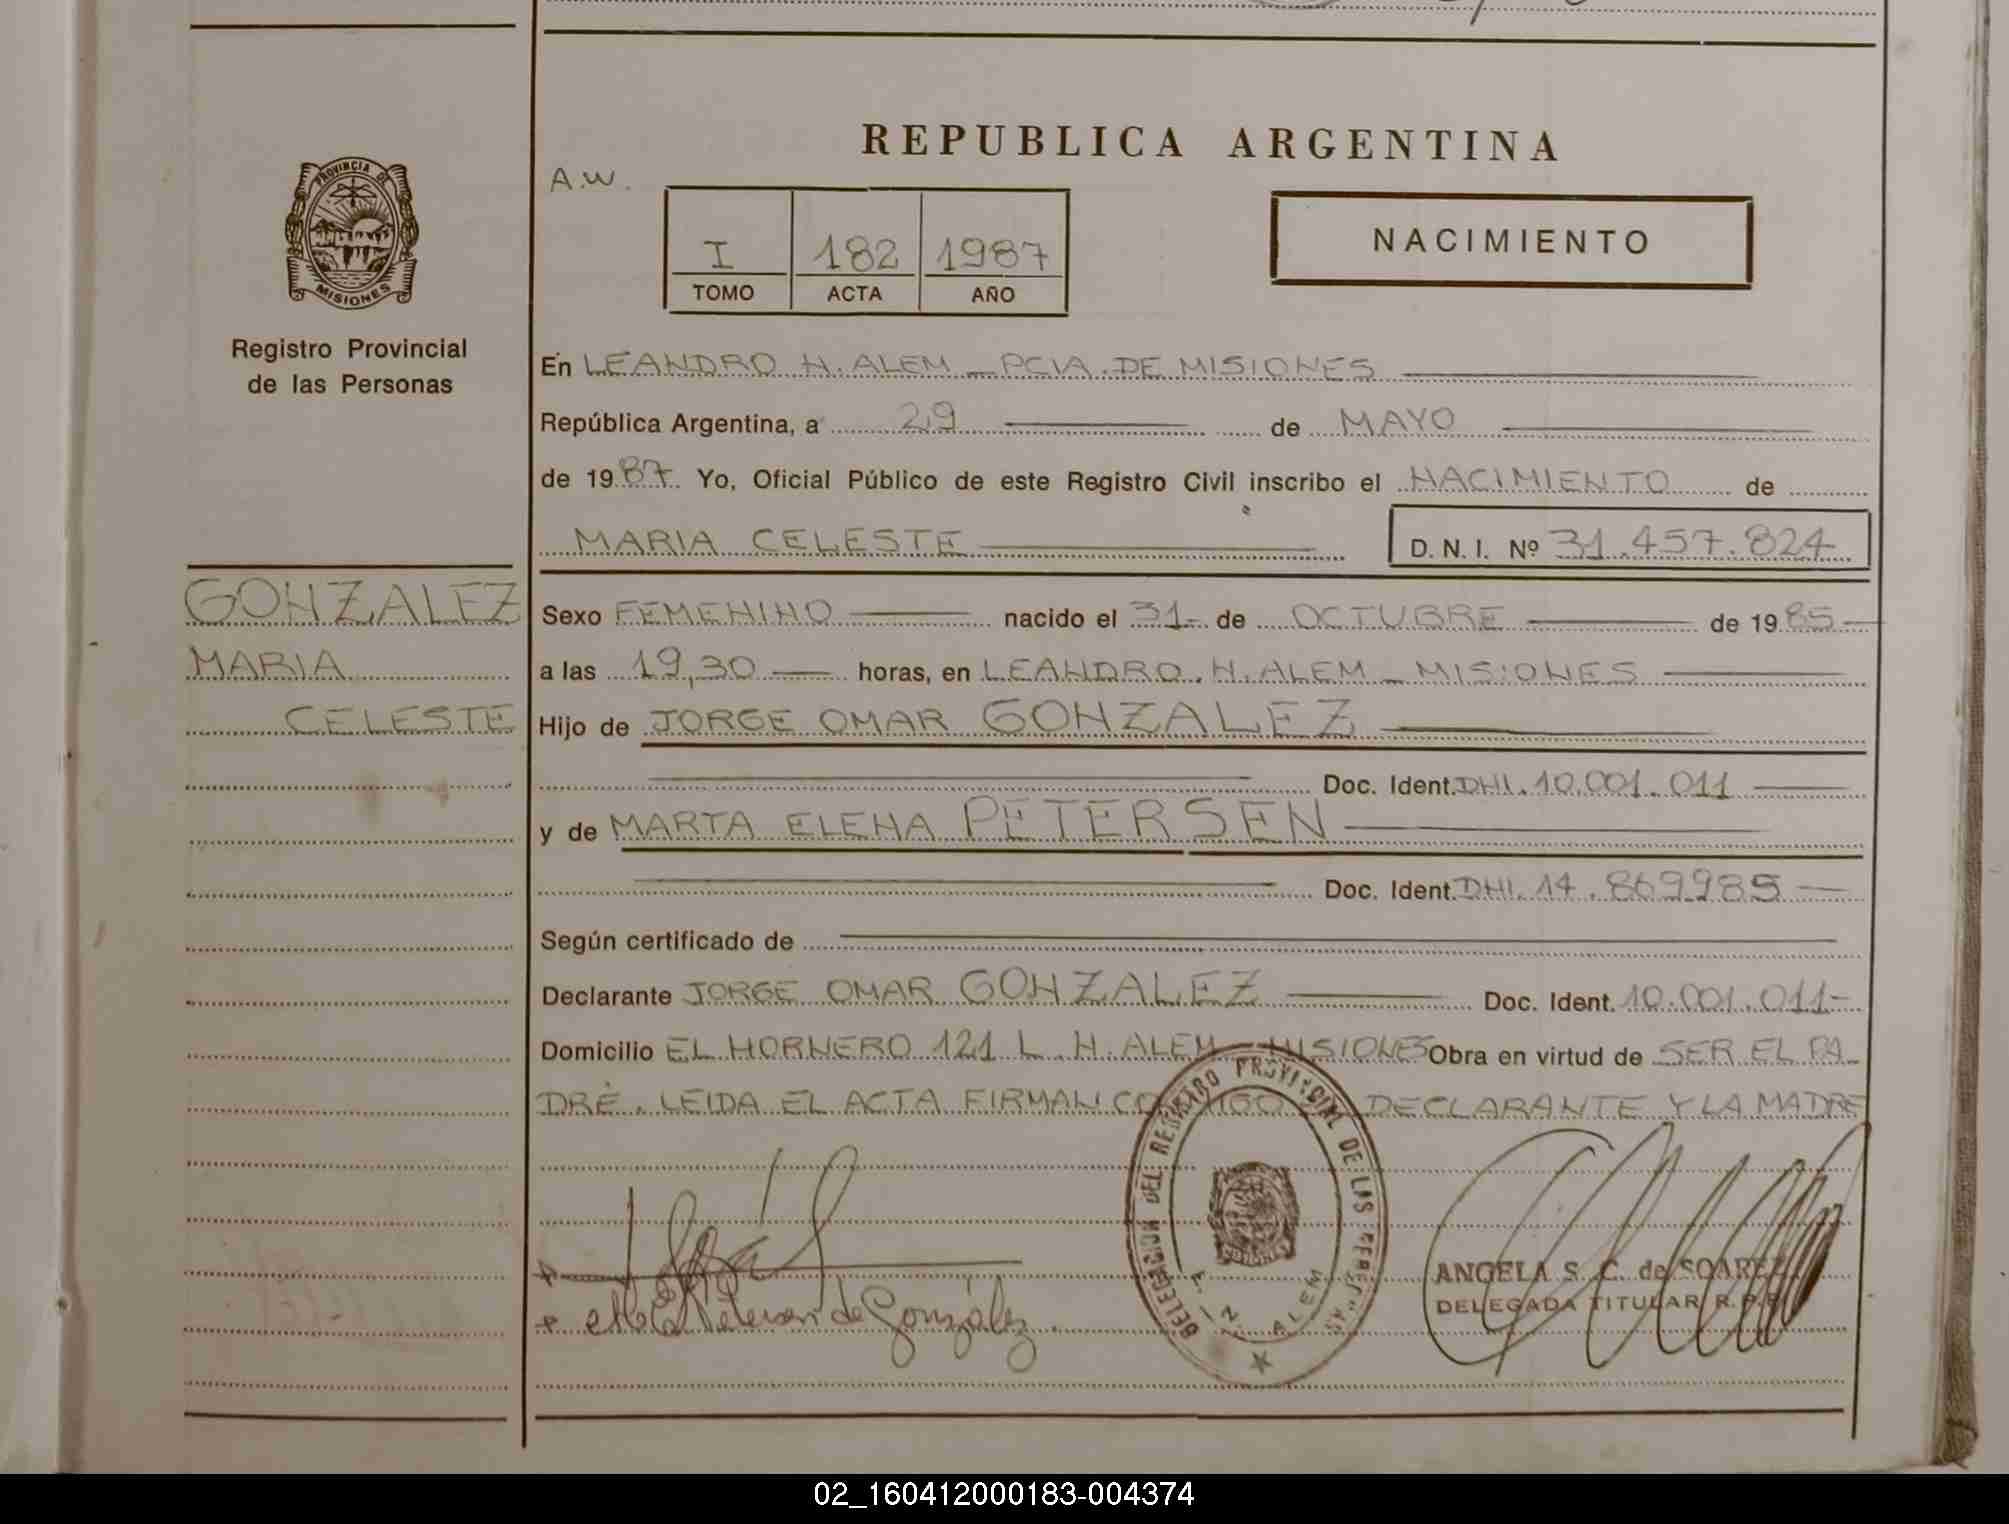 PROVINCIA DE
MISIONES
Registro Provincial
de las Personas
REPUBLICA ARGENTINA
A.W.
I 182 1987
TOMO ACTA AÑO
NACIMIENTO
En LEANDRO N. ALEM - PCIA. DE MISIONES
República Argentina, a 29 de MAYO
de 1987. Yo, Oficial Público de este Registro Civil inscribo el NACIMIENTO de
MARIA CELESTE D. N. I. Nº 31.457.824
GONZALEZ
MARIA
CELESTE
Sexo FEMENINO nacido el 31 de OCTUBRE de 1985
a las 19,30 horas, en LEANDRO. N. ALEM - MISIONES
Hijo de JORGE OMAR GONZALEZ
Doc. Ident. DNI. 10.001.011
y de MARTA ELENA PETERSEN
Doc. Ident. DNI. 14.869985
Según certificado de
Declarante JORGE OMAR GONZALEZ Doc. Ident. 10.001.011-
Domicilio EL HORNERO 121 L. N. ALEM - MISIONES Obra en virtud de SER EL PA-
DRE. LEIDA EL ACTA FIRMAN DECLARANTE Y LA MADRE
DELEGACION DEL REGISTRO PROVINCIAL DE LAS
ALEM
de González.
ANGELA S. C. de SOAREZ
DELEGADA TITULAR R.P.P.
02_160412000183-004374